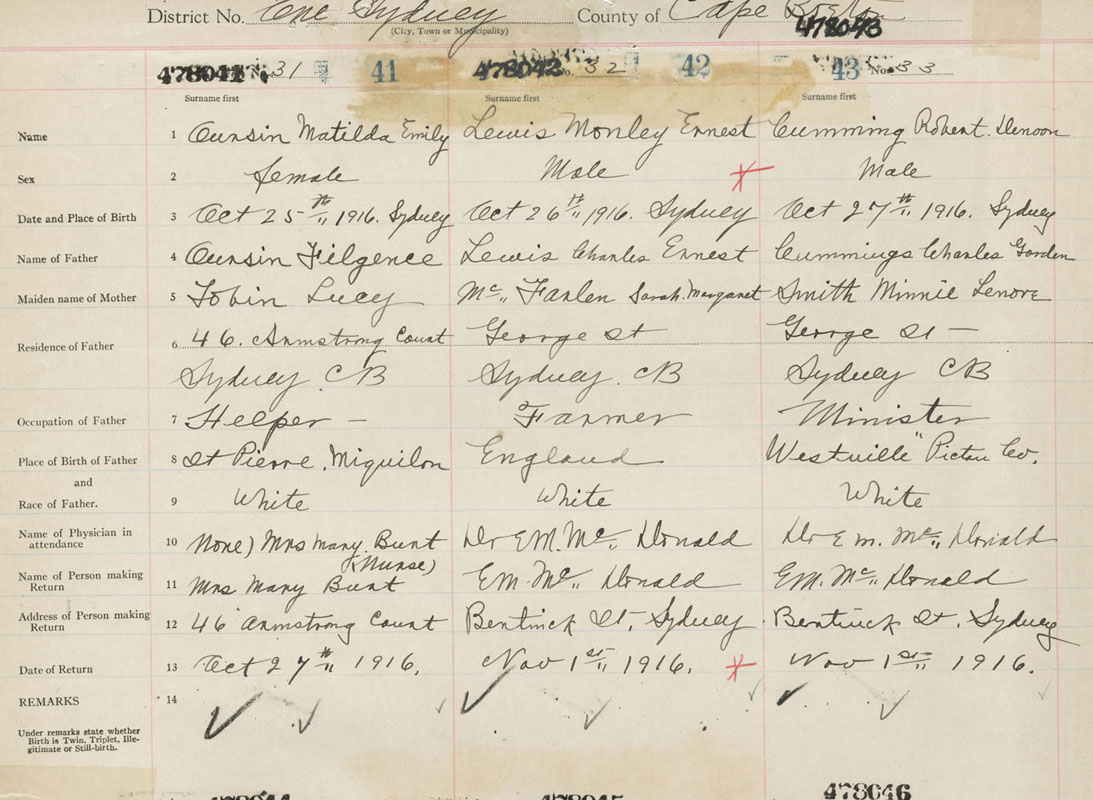 District No. One Sydney County of Cape Breton
(City, Town or Municipality)
478043
31 41 32 42 43 No. 33
Surname first Surname first Surname first
Name 1 Ounsin Matilda Emily Lewis Monley Ernest Cumming Robert Denoon
Sex 2 female Male Male
Date and Place of Birth 3 Oct 25th 1916. Sydney Oct 26th 1916. Sydney Oct 27th 1916. Sydney
Name of Father 4 Ounsin Filgence Lewis Charles Ernest Cummings Charles Gorden
Maiden name of Mother 5 Tobin Lucy Mc Farlen Sarah Margaret Smith Minnie Lenore
Residence of Father 6 46. Armstrong Court George St George St —
Sydney CB Sydney. CB Sydney CB
Occupation of Father 7 Helper — Farmer Minister
Place of Birth of Father 8 St Pierre. Miquilon England Westville Pictou Co.
and
Race of Father. 9 White White White
Name of Physician in
attendance 10 None) Mrs Mary Bunt Dr E.M. Mc Donald Dr E m. Mc Donald
(Nurse)
Name of Person making
Return 11 Mrs Mary Bunt EM. Mc Donald EM. Mc Donald
Address of Person making
Return 12 46 Armstrong Court Bentinck St, Sydney Bentinck St, Sydney
Date of Return 13 Oct 27th 1916. Nov 1st 1916. Nov 1st 1916.
REMARKS 14
Under remarks state whether
Birth is Twin, Triplet, Ille-
gitimate or Still-birth.
478046